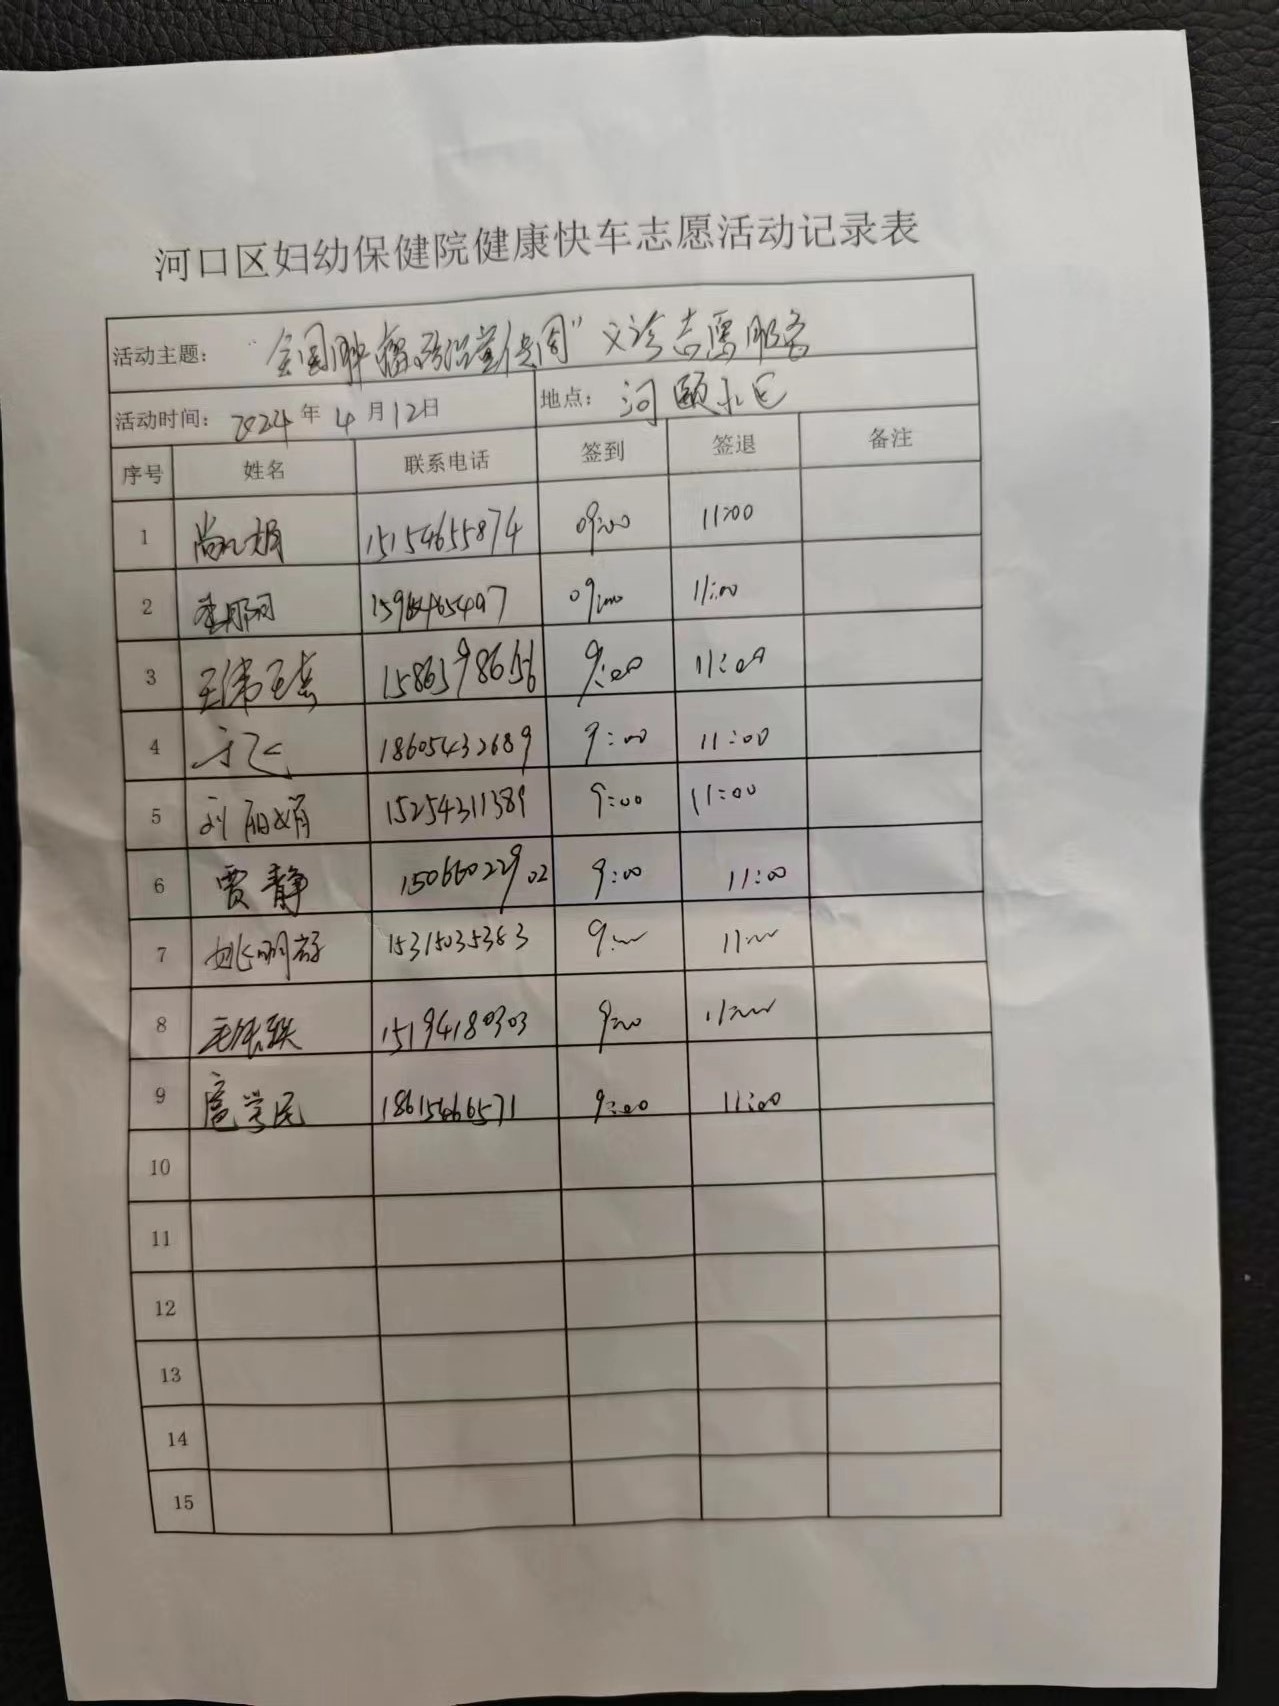 河口区妇幼保健院健康快车志愿活动记录表
活动主题：“全国肿瘤防治宣传周”义诊志愿服务
活动时间：2024年4月12日 地点：河颐小区
序号 姓名 联系电话 签到 签退 备注
1 15154655874 09:00 11:00
2 09:00 11:00
3 9:00 11:00
4 于飞 18605432689 9:00 11:00
5 刘丽娟 15254311389 9:00 11:00
6 贾静 15066022902 9:00 11:00
7 姚明芬 15315035383 9:00 11:00
8 15194180303 9:00 11:00
9 扈学民 18615466571 9:00 11:00
10
11
12
13
14
15